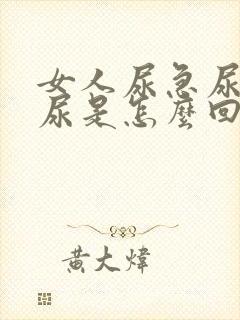 女人尿急尿
尿是怎麼回
黃大煒